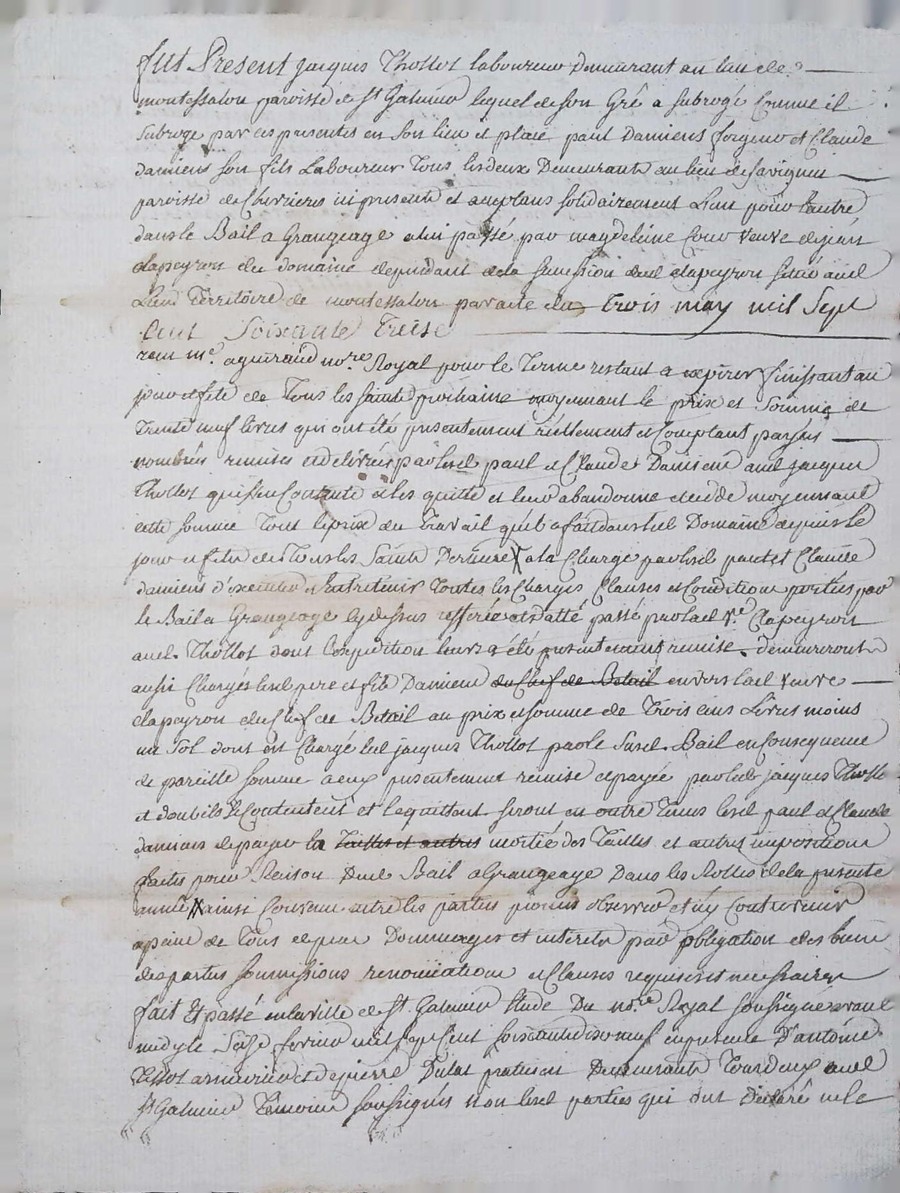 fut Present jacques Thollot laboureur Demeurant au lieu de
montessalon paroisse de St Galmier lequel de son Gré a subrogé Comme il
subroge par ces presentes en son lieu et place paul Damiens et Claude
damiens son fils Laboureur Tous les deux Demeurants au lieu de Savigneu
paroisse de Chevrieres ici presents et acceptans solidairement L'un pour l'autre
dans le Bail a Grangeage a lui passé par magdeleine veuve de jean
Clapeyron du domaine dependant de la sucession dud clapeyron situé aud
Lieu Territoire de montessalon par acte du Trois may mil Sept
Cent Soixante Treise
recu me. nore. Royal pour le Terme restant a expirer finissant au
jour et fete de Tous les saints prochaine moyennant le prix et Somme de
Trente neuf livres qui ont été presentement réellement et Comptant payés
nombrés remises et delivrées par lesd paul et Claude Damiens aud jacques
Thollot qui s'en Contente et les quitte et leur abandonne et cede moyennant
cette somme Tout le prix du Travail qu'il a fait dans led Domaine depuis le
jour et fete de Tous les Saints Derniere a la Charge par lesd paul et Claude
damiens d'executer et Entretenir Toutes les Charges Clauses et Conditions portées par
le Bail a Grangeage cy dessus et datté passé par lad ve. Clapeyron
aud. Thollot dont l'expedition leur a été presentement remise. demeureront
aussi Chargés lesd pere et fils Damiens du Chef de Betail envers lad veuve
clapeyron du Chef de Betail au prix et somme de Trois cens Livres moins
un Sol dont est Chargé led jacques Thollot par le Susd. Bail en Consequence
de pareille somme a eux presentement remise et payée par led jacques Thollot
et dont ils se Contentent et le quittent seront en outre Tenus lesd paul et Claude
damiens de payer la Tailles et autres moitié des Tailles et autres impositions
faites pour Raison Dud Bail a Grangeage Dans les Rolles de la presente
année ainsi Convenu entre les parties promis observer et n'y Contrevenir
a peine de Tous depens Dommages et interets par obligation des biens
des parties soumissions renonciations et Clauses requises et necessaires
fait Et passé en la ville de St Galmier Etude Du nore. Royal soussigné avant
midy le Seise fevrier mil sept Cent soixante dix neuf en presence D'antoine
Tissot armurier et de pierre Dulac praticien Demeurants Tous deux aud
St Galmier Temoins soussignés non lesd parties qui ont Declaré ne le